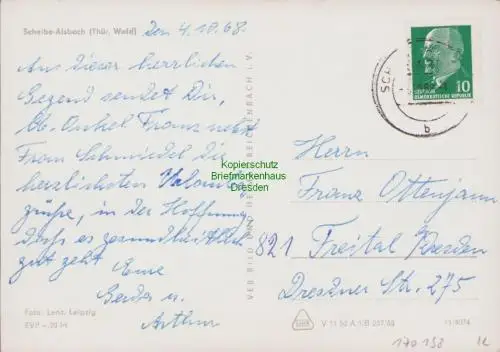 Scheibe-Alsbach (Thür. Wald)
Den 4.10.68.
Aus dieser herrlichen
Gegend sendet Dir,
lb. Onkel Franz nebst
Frau Schmiedel die
herzlichsten
grüße, in der Hoffnung
dass es gesundheitlich
gut geht Eure
Gerda u.
Arthur
Foto: Lenz, Leipzig
EVP -,20 M
VEB BILD UND HEIMAT REICHENBACH I. V.
DEUTSCHE
DEMOKRATISCHE REPUBLIK 10
SCH
b
Herrn
Franz Ottenjann
821 Freital Dresden
Dresdner Str. 275
V 11 50 A 1/B 257/68
170 158
Kopierschutz
Briefmarkenhaus
Dresden